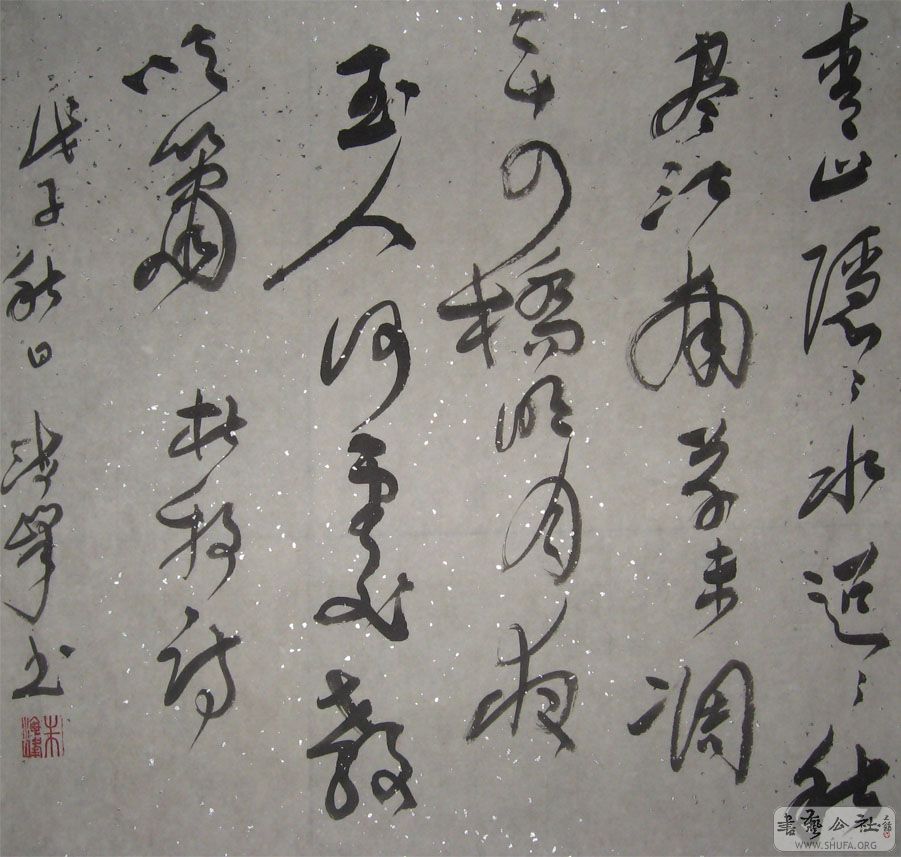 青山隱々水迢々秋
尽江南草未凋
二十四橋明月夜
玉人何處教
吹簫 杜牧詩
戊子秋日 海峰书
書藝公社
WWW.SHUFA.ORG